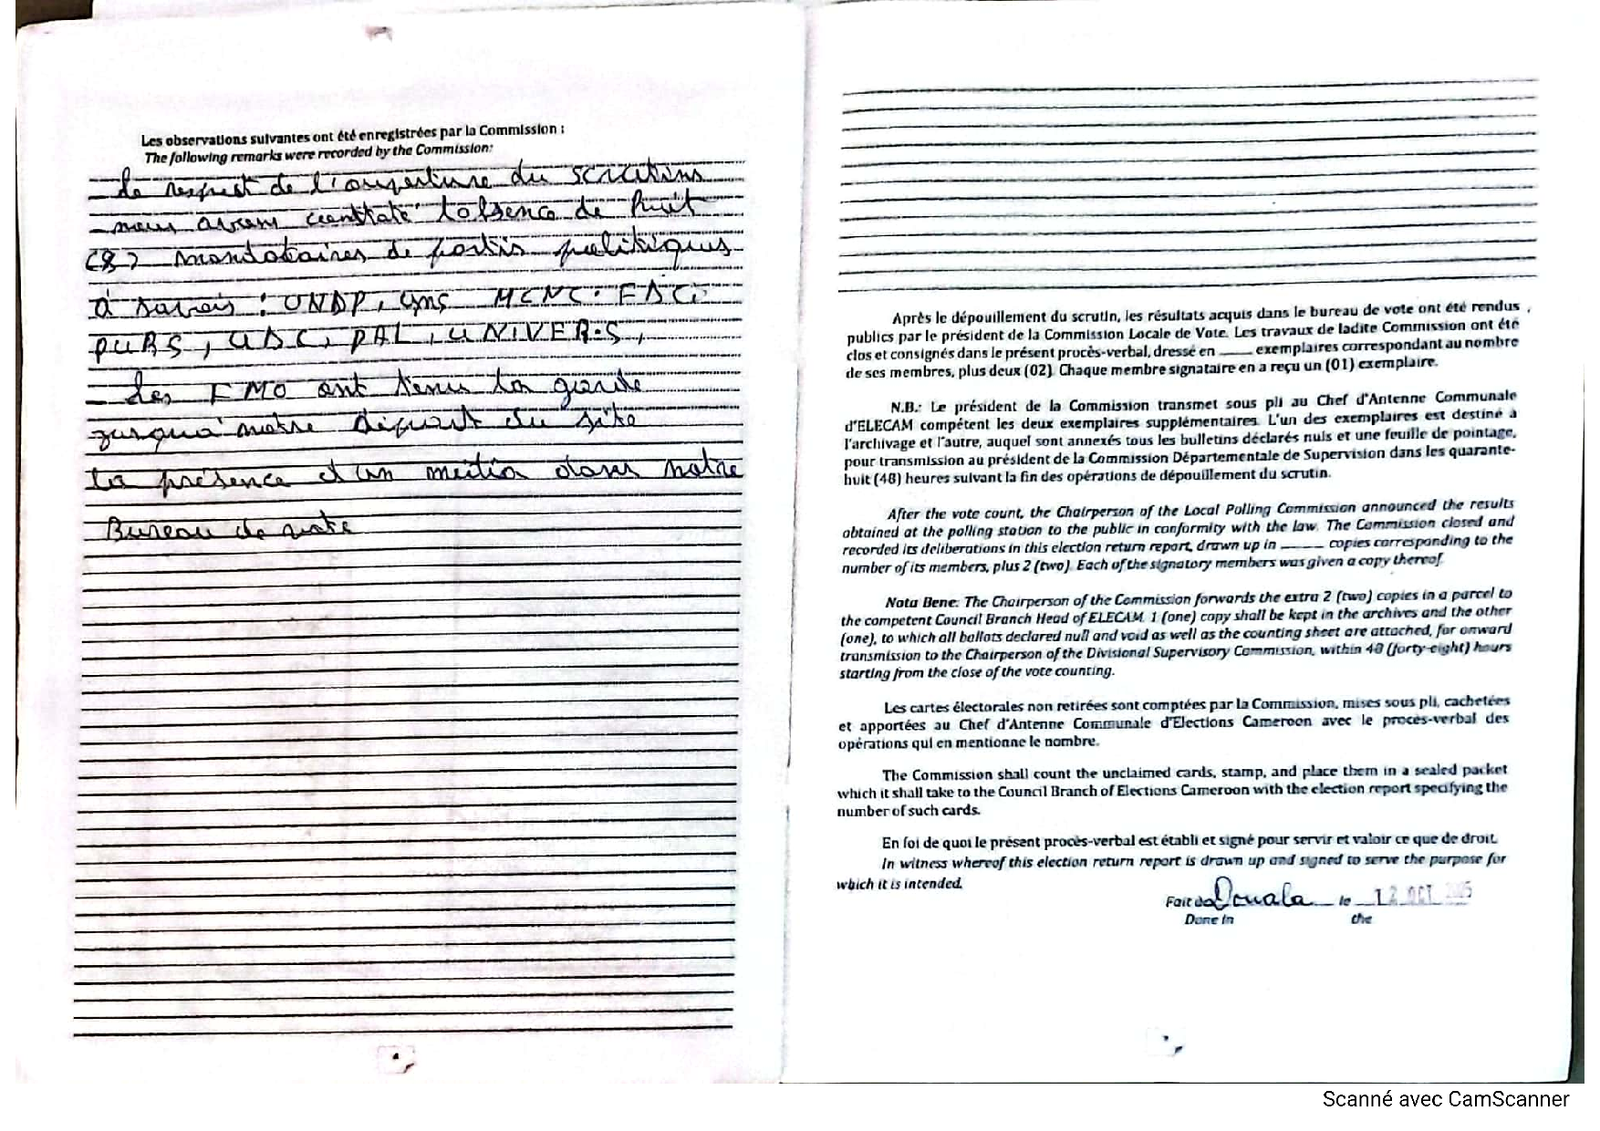 Les observations suivantes ont été enregistrées par la Commission :
The following remarks were recorded by the Commission:
- Le respect de l'ouverture du scrutins
- nous avons constaté l'absence de huit
(8) mandataires de partis politiques
à savoir : UNDP, UMS MCNC. FDC.
PURS, UDC, PAL, UNIVERS,
- Les FMO ont tenus la garde
jusqu'a notre départ du site
la présence d'un média dans notre
Bureau de vote
Après le dépouillement du scrutin, les résultats acquis dans le bureau de vote ont été rendus
publics par le président de la Commission Locale de Vote. Les travaux de ladite Commission ont été
clos et consignés dans le présent procès-verbal, dressé en ____ exemplaires correspondant au nombre
de ses membres, plus deux (02). Chaque membre signataire en a reçu un (01) exemplaire.
N.B.: Le président de la Commission transmet sous pli au Chef d'Antenne Communale
d'ELECAM compétent les deux exemplaires supplémentaires. L'un des exemplaires est destiné à
l'archivage et l'autre, auquel sont annexés tous les bulletins déclarés nuls et une feuille de pointage,
pour transmission au président de la Commission Départementale de Supervision dans les quarante-
huit (48) heures suivant la fin des opérations de dépouillement du scrutin.
After the vote count, the Chairperson of the Local Polling Commission announced the results
obtained at the polling station to the public in conformity with the law. The Commission closed and
recorded its deliberations in this election return report, drawn up in ____ copies corresponding to the
number of its members, plus 2 (two). Each of the signatory members was given a copy thereof.
Nota Bene: The Chairperson of the Commission forwards the extra 2 (two) copies in a parcel to
the competent Council Branch Head of ELECAM. 1 (one) copy shall be kept in the archives and the other
(one), to which all ballots declared null and void as well as the counting sheet are attached, for onward
transmission to the Chairperson of the Divisional Supervisory Commission, within 48 (forty-eight) hours
starting from the close of the vote counting.
Les cartes électorales non retirées sont comptées par la Commission, mises sous pli, cachetées
et apportées au Chef d'Antenne Communale d'Elections Cameroon avec le procès-verbal des
opérations qui en mentionne le nombre.
The Commission shall count the unclaimed cards, stamp, and place them in a sealed packet
which it shall take to the Council Branch of Elections Cameroon with the election report specifying the
number of such cards.
En foi de quoi le présent procès-verbal est établi et signé pour servir et valoir ce que de droit.
In witness whereof this election return report is drawn up and signed to serve the purpose for
which it is intended.
Fait à Douala le 12 OCT 2025
Done in the
Scanné avec CamScanner